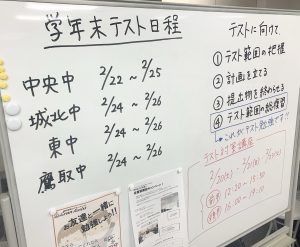 学年末テスト日程
中央中 2/22 ~ 2/25
城北中 2/24 ~ 2/26
東中 2/24 ~ 2/26
鷹取中 2/24 ~ 2/26
テストに向けて
① テスト範囲の把握
② 計画を立てる
③ 提出物を終わらせる
④ テスト範囲の総復習
これがテスト勉強です!!
テスト対策講座
2/20(土)
お友達と一緒に
勉強しよう!!